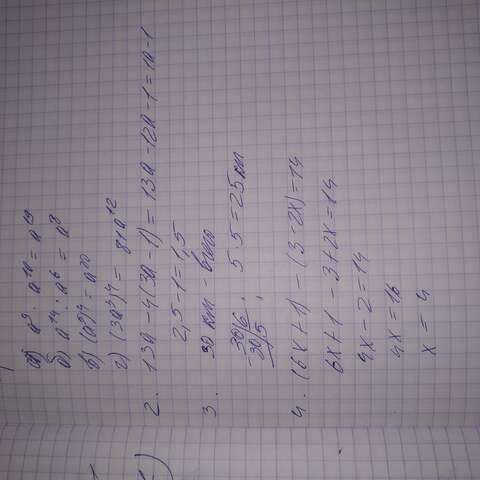 1
а) a⁹ · a¹⁰ = a¹⁹
б) a¹⁴ : a⁶ = a⁸
в) (a⁵)⁴ = a²⁰
г) (3a³)⁴ = 81a¹²
2. 13a - 4(3a - 1) = 13a - 12a - 1 = 1a - 1
2,5 - 1 = 1,5
3. 30 км - было
30 | 6
30 | 5
5 · 5 = 25 км
4. (6x + 1) - (3 - 2x) = 14
6x + 1 - 3 + 2x = 14
4x - 2 = 14
4x = 16
x = 4